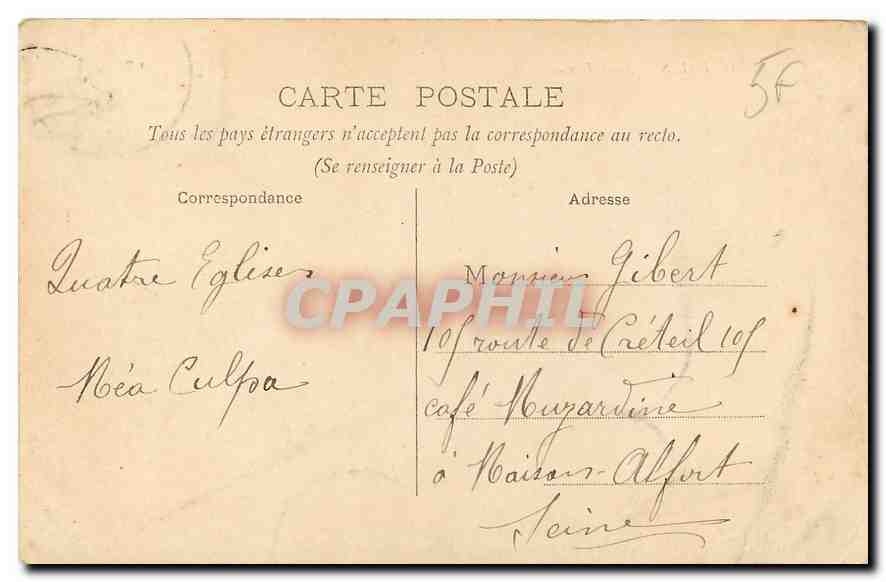 5F
CARTE POSTALE
Tous les pays étrangers n'acceptent pas la correspondance au recto.
(Se renseigner à la Poste)
Correspondance
Adresse
Quatre Eglises
Méa Culpa
Monsieur Gibert
105 route de Créteil 105
café Muzardine
à Maisons-Alfort
Seine
CPAPHIL